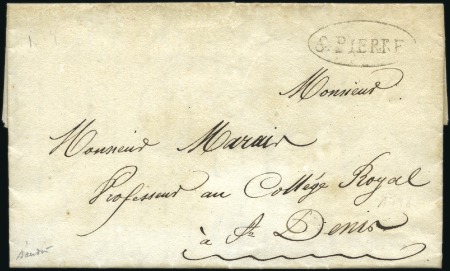 S. PIERRE
Monsieur
Monsieur Marais
Professeur au Collège Royal
à St. Denis